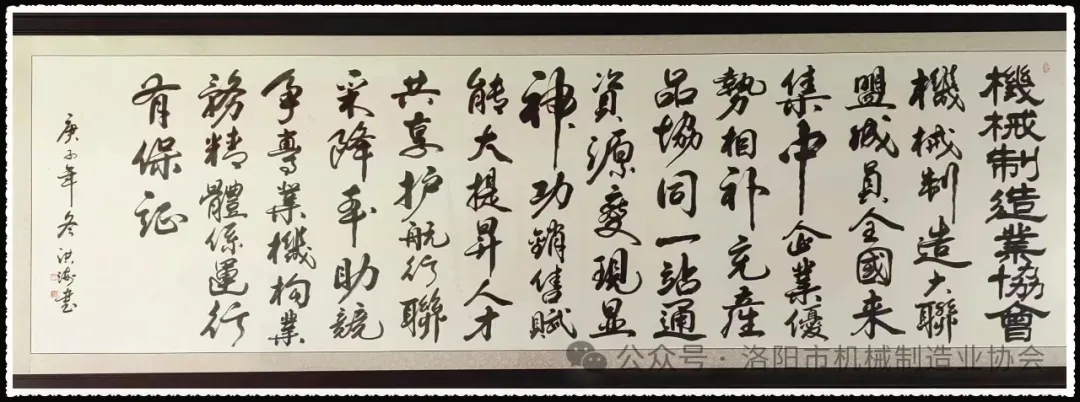 機械制造業協會
機械制造大聯
盟成員全國来
集中企業優
勢相补充產
品協同一站通
資源变現显
神功銷售賦
能大提昇人才
共享护航行聯
采降本助競
争專業機构業
務精體係運行
有保证
庚子年冬洪海書
公众号·洛阳市机械制造业协会